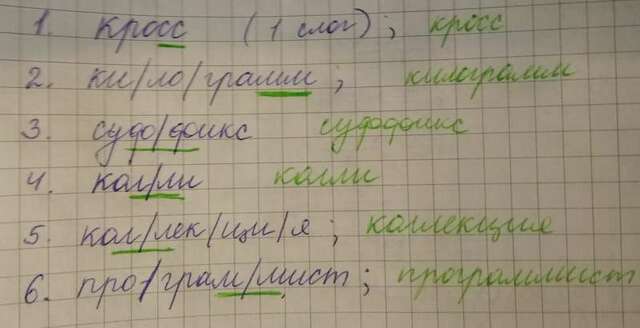 1. кросс (1 слог); кросс
2. ки/ло/грамм; килограмм
3. судо/фикс судофикс
4. кол/ли колли
5. кол/лек/ци/я; коллекция
6. про/грам/мист; программист